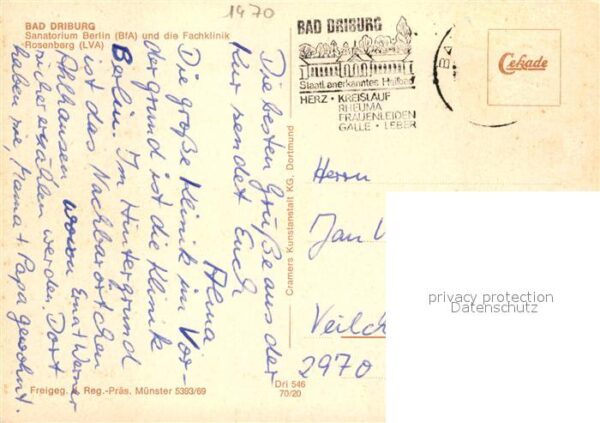 1970
BAD DRIBURG
Sanatorium Berlin (BfA) und die Fachklinik
Rosenberg (LVA)
Die besten Grüße aus der
Kur sendet Euch
Alma
Die große Klinik im Vor-
dergrund ist die Klinik
Berlin. Im Hintergrund
ist das Nachbarörtchen
Ahlhausen wovon Erna + Werner
sicher erzählen werden. Dort
haben sie, Mama + Papa gewohnt.
Freigeg. Reg.-Präs. Münster 5393/69
Cramers Kunstanstalt KG, Dortmund
Dri 546
70/20
BAD DRIBURG
Staatl. anerkanntes Heilbad
HERZ · KREISLAUF
RHEUMA
FRAUENLEIDEN
GALLE · LEBER
Cekade
Herrn
Jan
Veilch
2970
privacy protection
Datenschutz